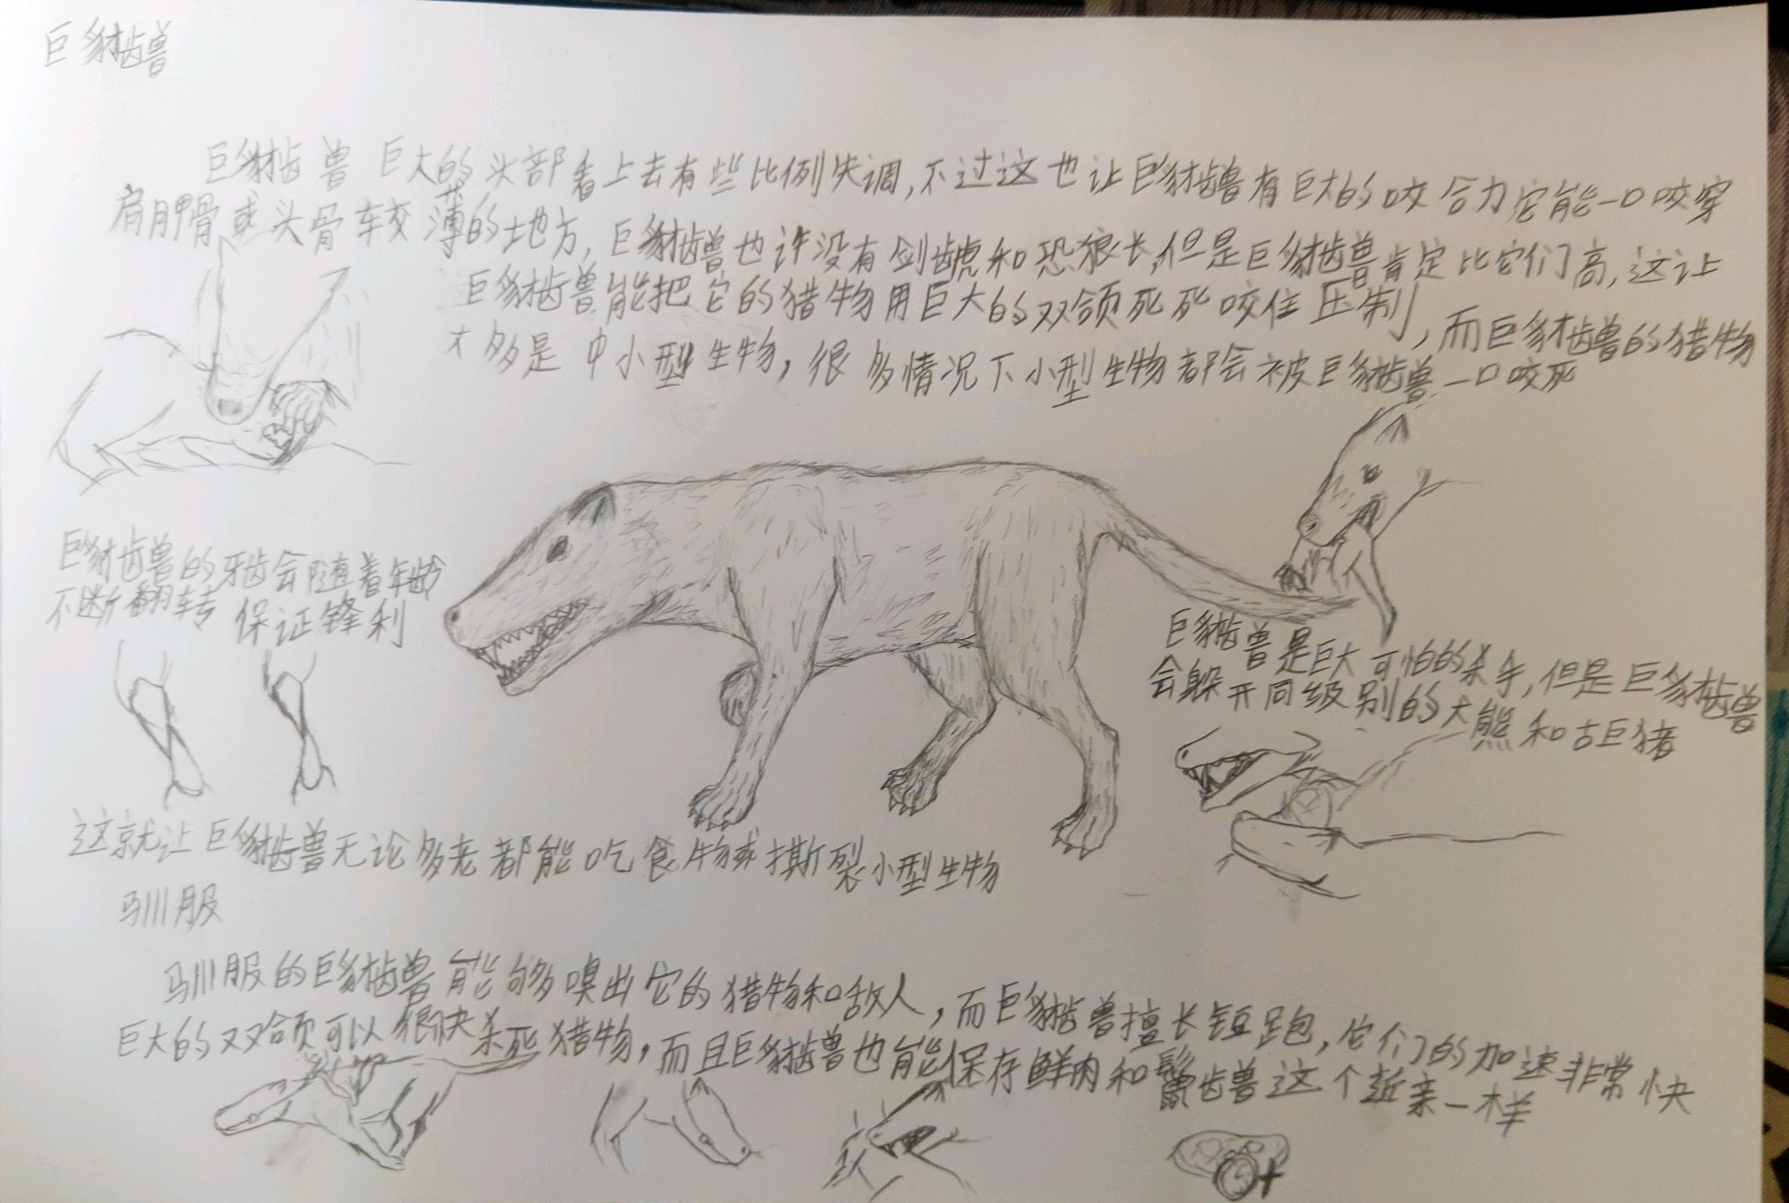 巨豺齿兽
巨豺齿兽 巨大的头部看上去有些比例失调,不过这也让巨豺齿兽有巨大的咬合力它能一口咬穿
肩胛骨或头骨较薄的地方,巨豺齿兽也许没有剑齿虎和恐狼长,但是巨豺齿兽肯定比它们高,这让
巨豺齿兽能把它的猎物用巨大的双颌死死咬住压制,而巨豺齿兽的猎物
大多是中小型生物,很多情况下小型生物都会被巨豺齿兽一口咬死
巨豺齿兽的牙齿会随着年龄
不断翻转 保证锋利
巨豺齿兽是巨大可怕的杀手,但是巨豺齿兽
会躲开同级别的大熊和古巨猪
这就让巨豺齿兽无论多老都能吃食物或撕裂小型生物
驯服
驯服的巨豺齿兽能够嗅出它的猎物和敌人,而巨豺齿兽擅长短跑,它们的加速非常快
巨大的双颌可以很快杀死猎物,而且巨豺齿兽也能保存鲜肉和鬣齿兽这个近亲一样